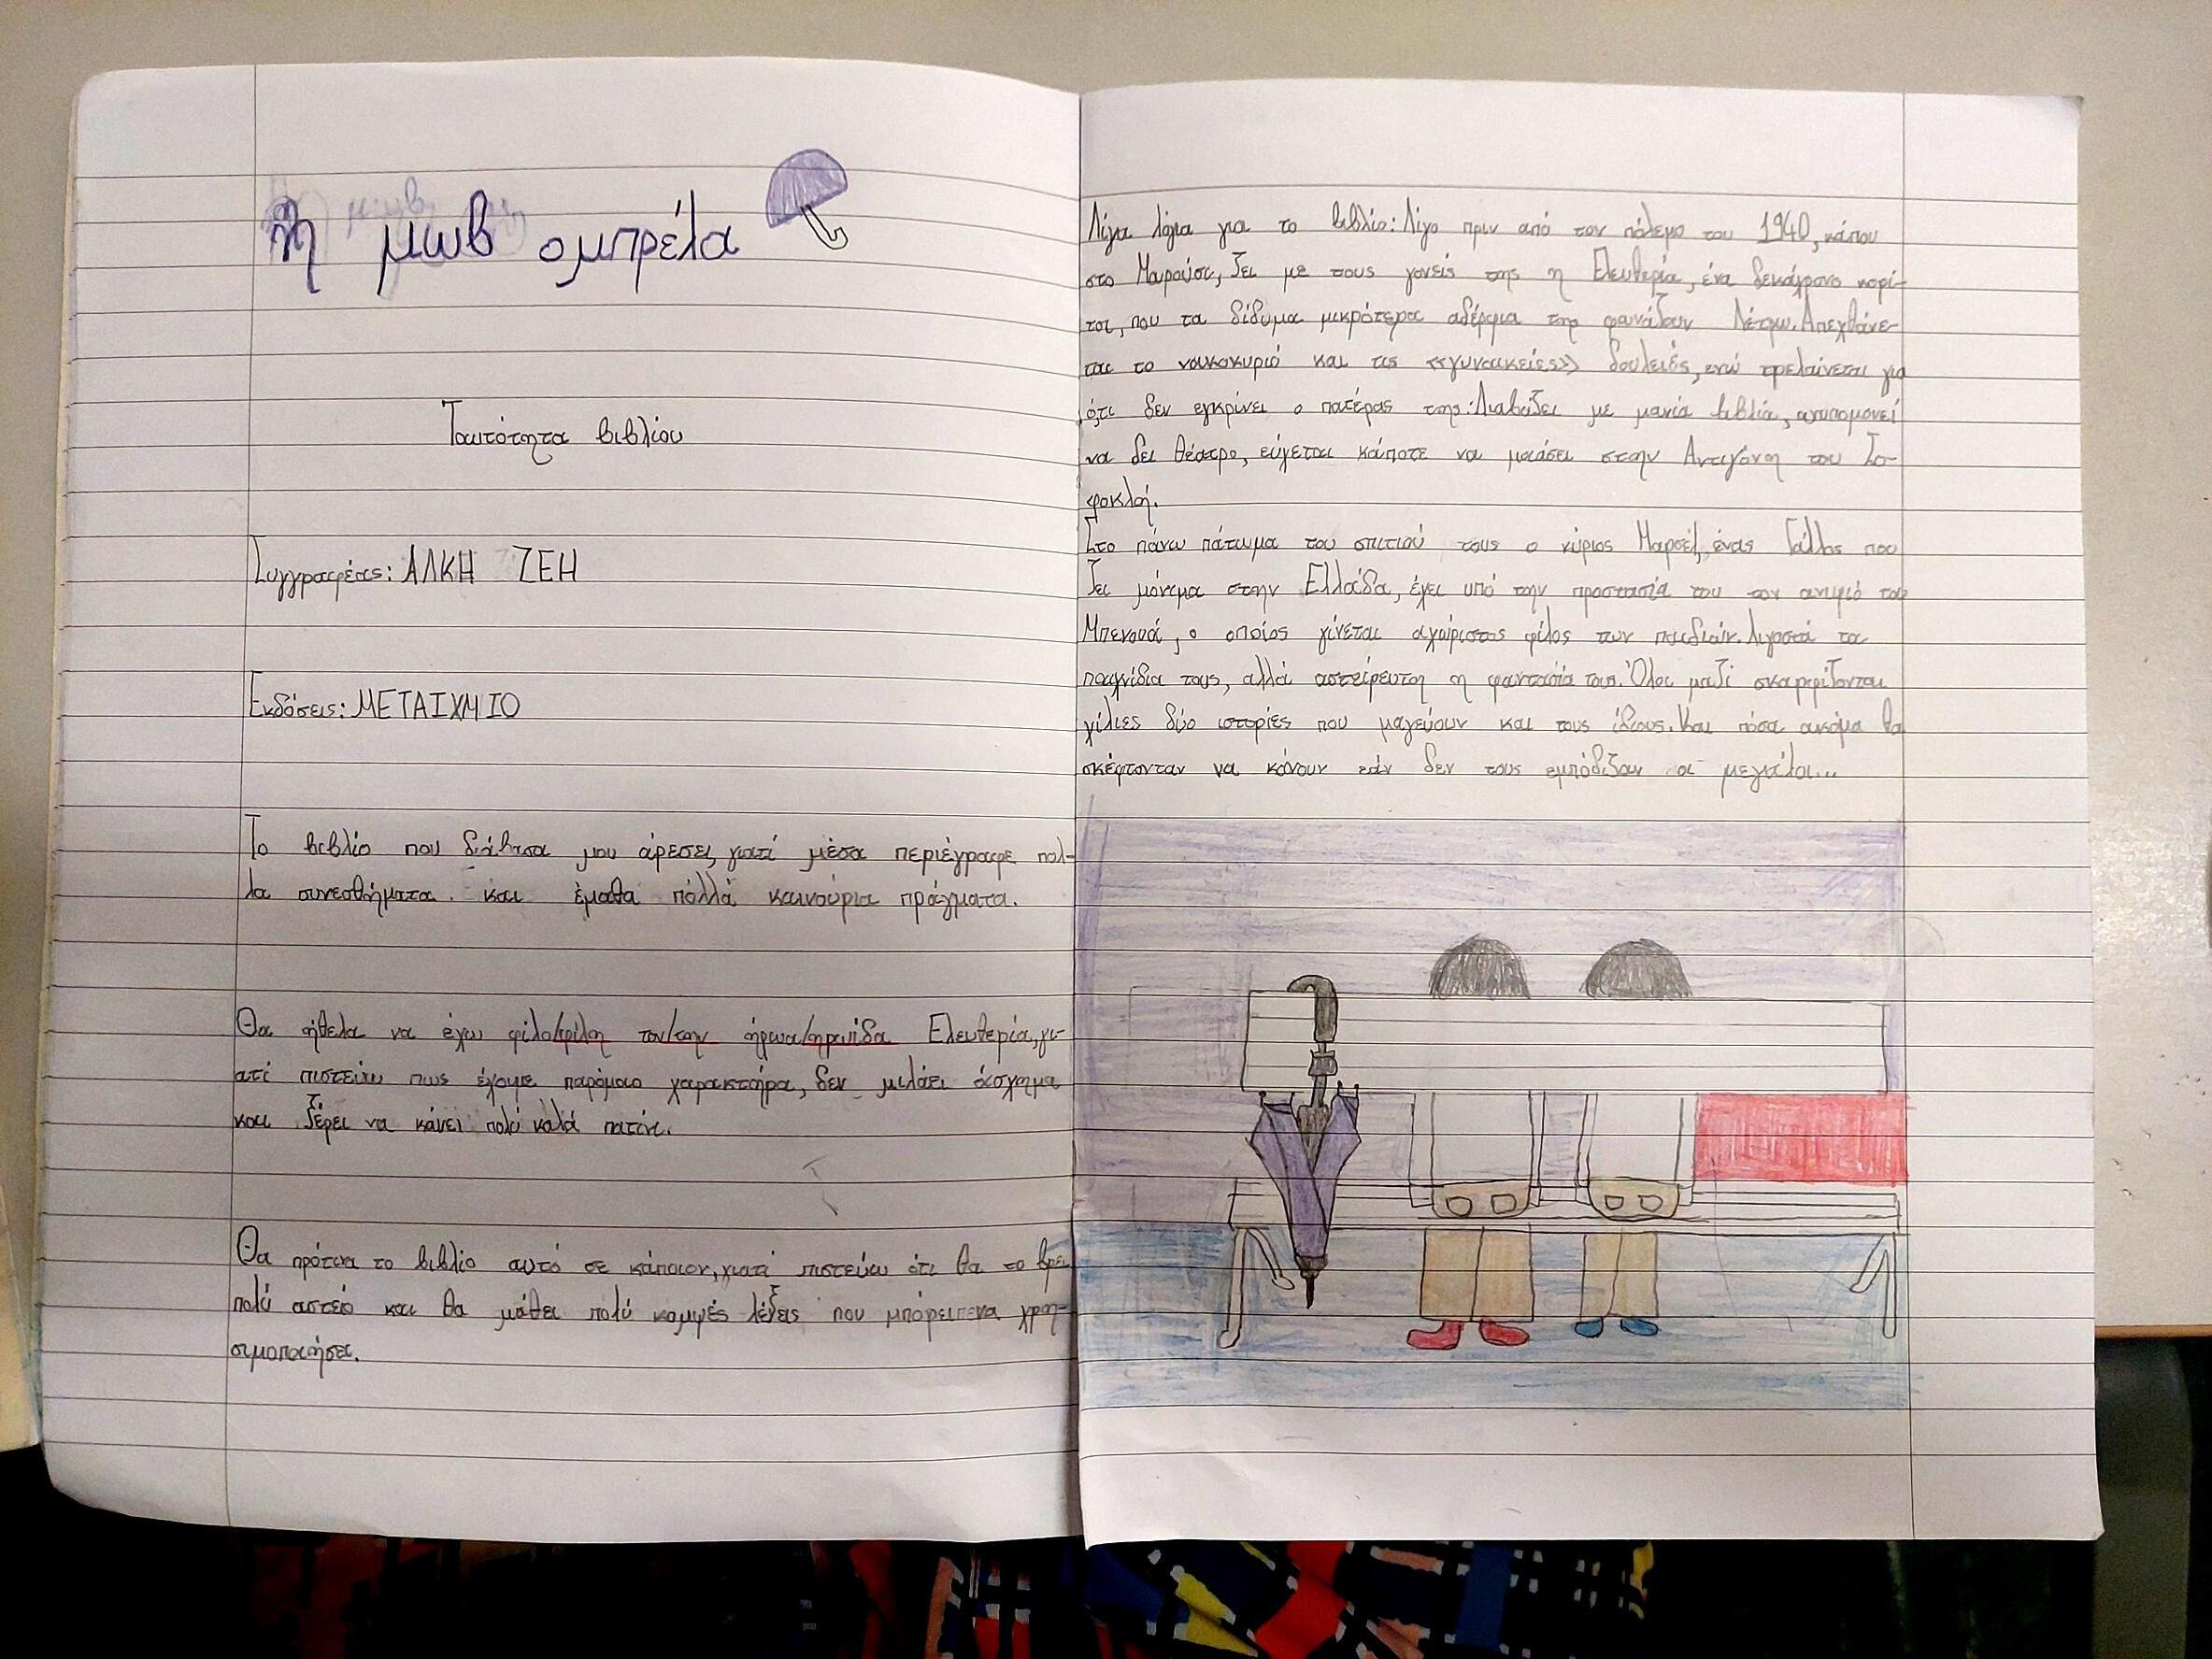 Η μωβ ομπρέλα
Ταυτότητα βιβλίου
Συγγραφέας: ΑΛΚΗ ΖΕΗ
Εκδόσεις: ΜΕΤΑΙΧΜΙΟ
Το βιβλίο που διάβασα μου άρεσε, γιατί μέσα περιέγραφε πολ-
λα συνεσθήματα. και έμαθα πολλά καινούρια πράγματα.
Θα ήθελα να έχω φίλο/φίλη τον/την ήρωα/ηρωίδα Ελευθερία, γι-
ατί πιστεύω πως έχουμε παρόμοιο χαρακτήρα, δεν μιλάει άσχημα
και ξέρει να κάνει πολύ καλά πατίνι.
Θα πρότεινα το βιβλίο αυτό σε κάποιον, γιατί πιστεύω ότι θα το βρει
πολύ αστείο και θα μάθει πολύ κομψές λέξεις που μπορεί να χρη-
σιμοποιήσει.
Λίγα λόγια για το βιβλίο: Λίγο πριν από τον πόλεμο του 1940, κάπου
στο Μαρούσι, ζει με τους γονείς της η Ελευθερία, ένα δεκάχρονο κορί-
τσι, που τα δίδυμα μικρότερα αδέρφια της φωνάζουν Λέτφω. Απεχθάνε-
ται το νοικοκυριό και τις «γυναικείες» δουλειές, ενώ τρελαίνεται για
ό,τι δεν εγκρίνει ο πατέρας της: Διαβάζει με μανία βιβλία, ανυπομονεί
να δει θέατρο, εύχεται κάποτε να μοιάσει στην Αντιγόνη του Σο-
φοκλή.
Στο πάνω πάτωμα του σπιτιού τους ο κύριος Μαρσέλ, ένας Γάλλος που
ζει μόνιμα στην Ελλάδα, έχει υπό την προστασία του τον ανιψιό του
Μπενουά, ο οποίος γίνεται αχώριστος φίλος των παιδιών. Λιγοστά τα
παιχνίδια τους, αλλά αστείρευτη η φαντασία τους. Όλοι μαζί σκαρφίζονται
χίλιες δύο ιστορίες που μαγεύουν και τους ίδιους. Και πόσα ακόμα θα
σκέφτονταν να κάνουν εάν δεν τους εμπόδιζαν οι μεγάλοι...